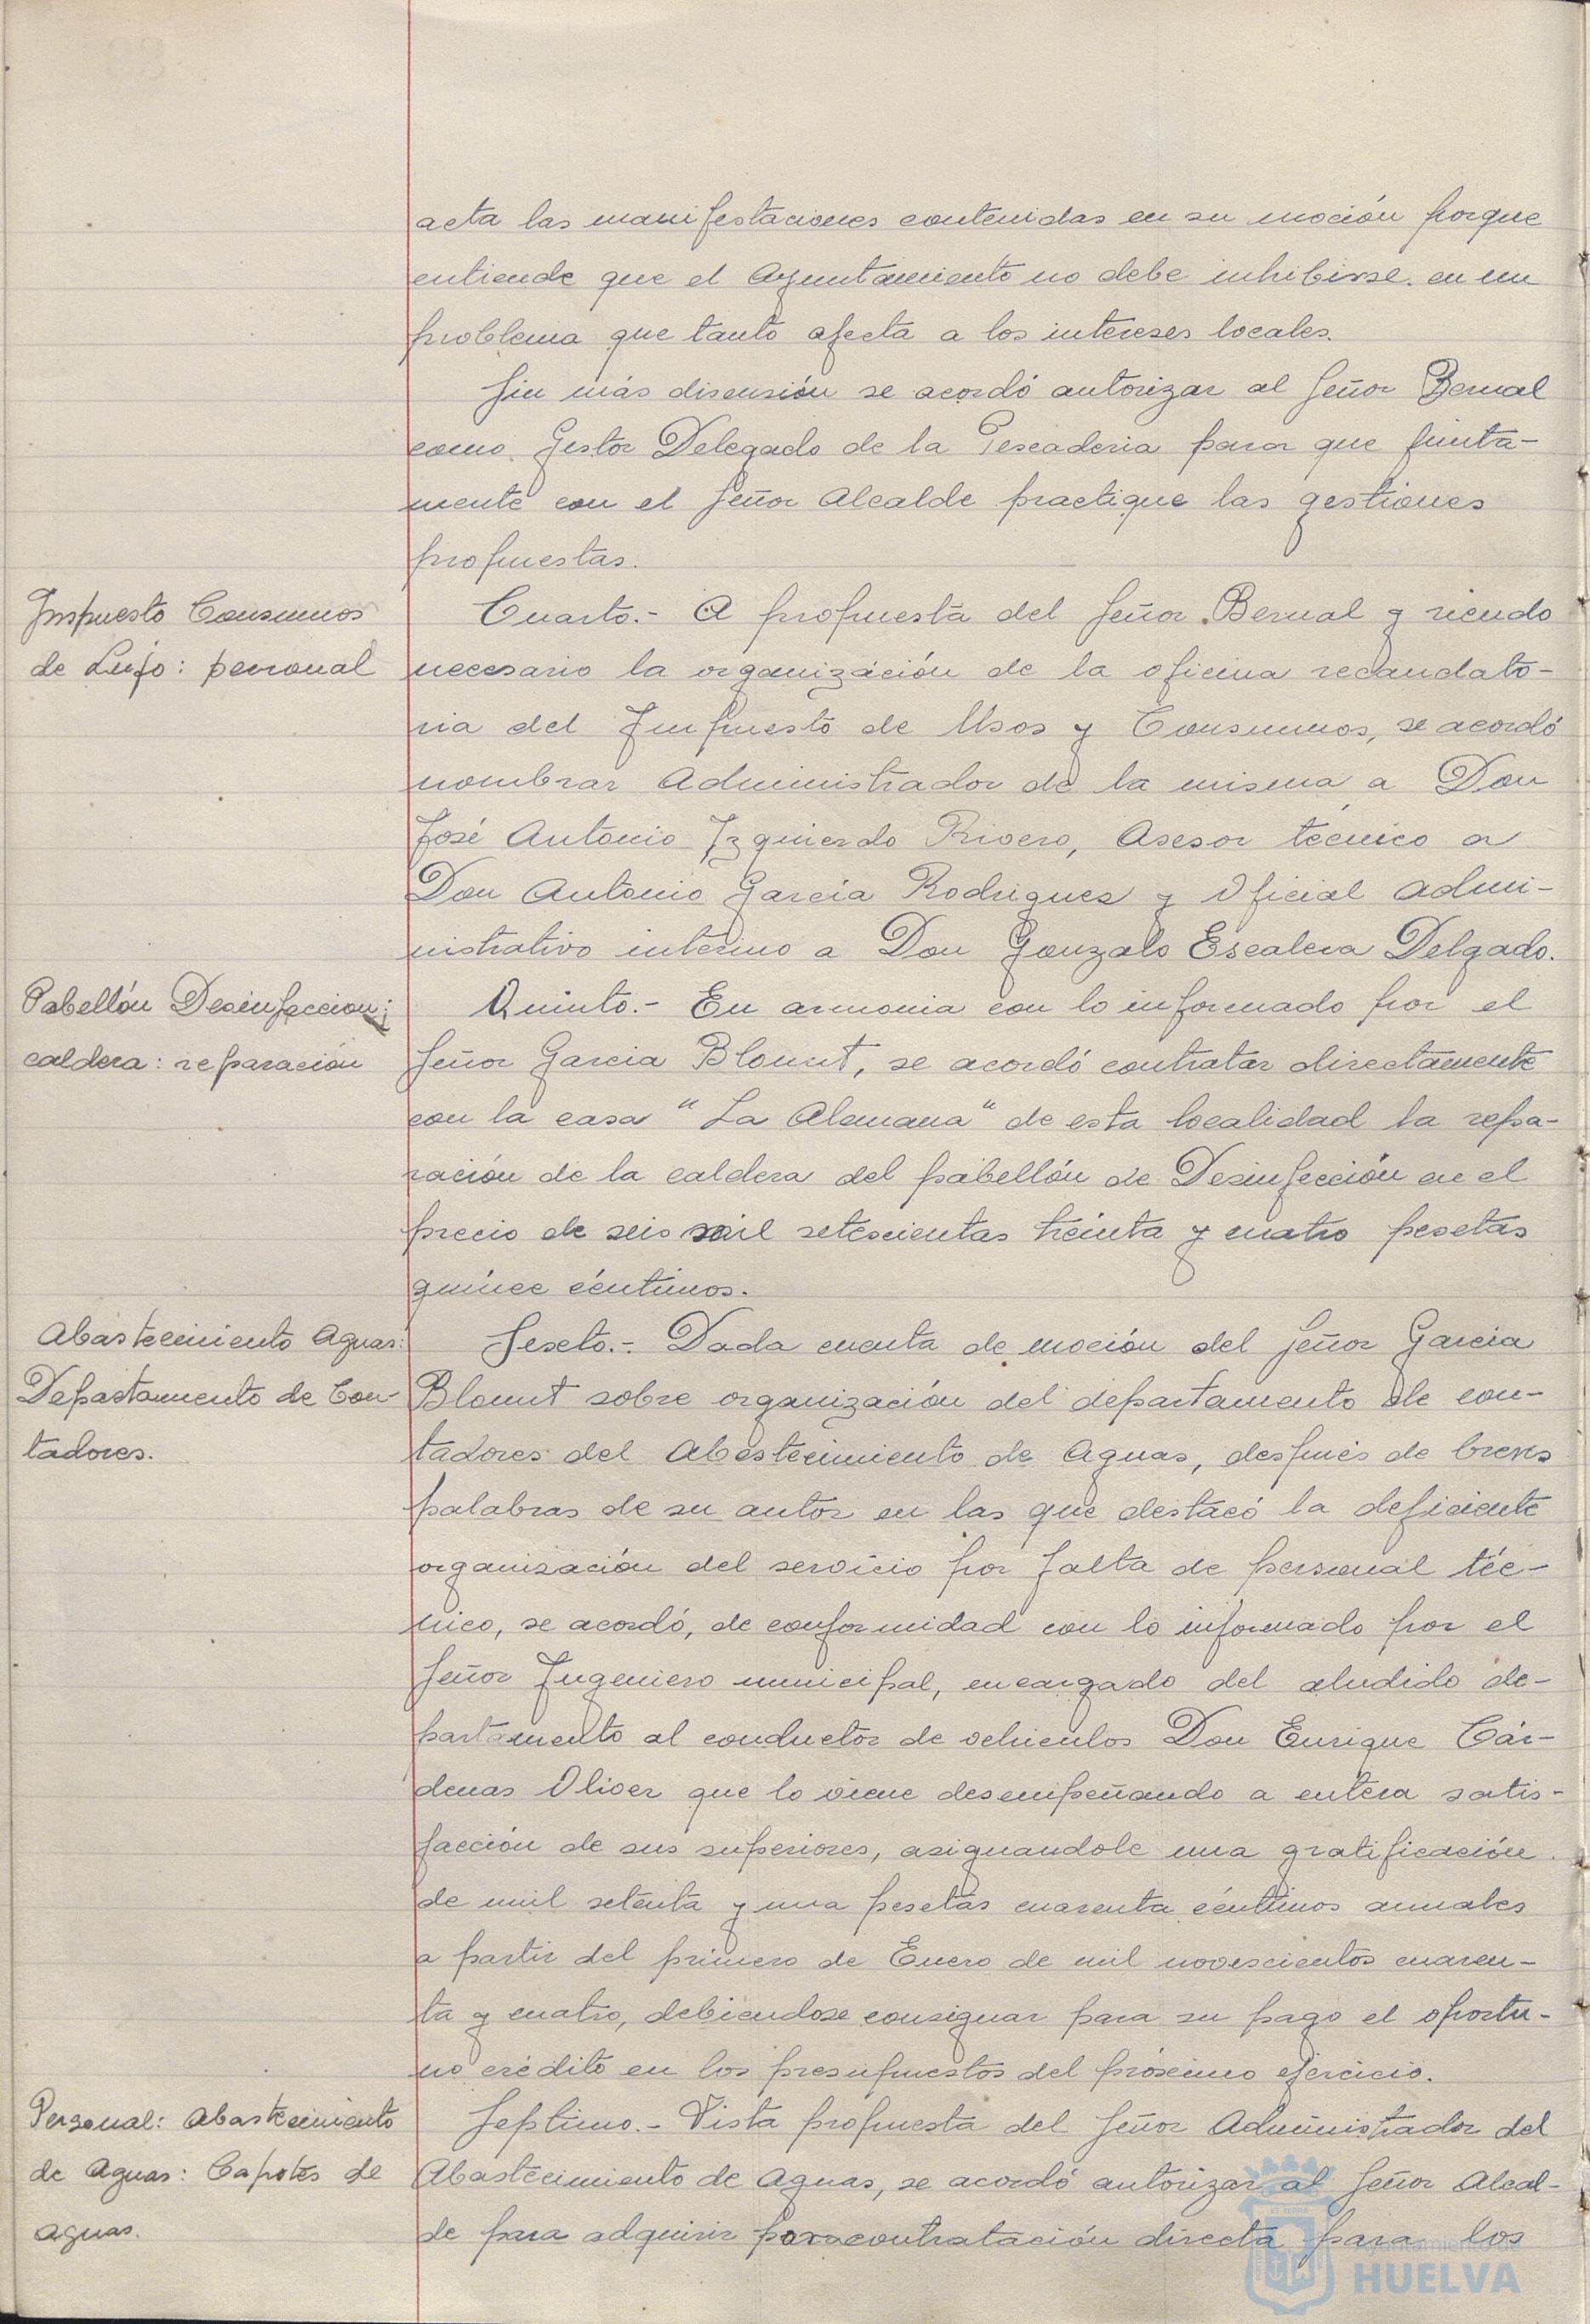 acta las manifestaciones contenidas en su moción porque
entiende que el Ayuntamiento no debe inhibirse en un
problema que tanto afecta a los intereses locales.
Sin más discusión se acordó autorizar al Señor Bernal
como Gestor Delegado de la Pescaderia para que junta-
mente con el Señor Alcalde practique las gestiones
propuestas.
Impuesto Consumos
de Lujo: personal
Cuarto.- A propuesta del Señor Bernal y siendo
necesario la organización de la oficina recaudato-
ria del Impuesto de Usos y Consumos, se acordó
nombrar Administrador de la misma a Don
José Antonio Izquierdo Rivero, Asesor técnico a
Don Antonio Garcia Rodriguez y Oficial admi-
nistrativo interino a Don Gonzalo Escalera Delgado.
Pabellón Desinfeccion;
caldera: reparación
Quinto.- En armonia con lo informado por el
Señor Garcia Blount, se acordó contratar directamente
con la casa "La Alemana" de esta localidad la repa-
ración de la caldera del pabellón de Desinfección en el
precio de seis mil setescientas treinta y cuatro pesetas
quince céntimos.
Abastecimiento Aguas:
Departamento de Con-
tadores.
Sexto.- Dada cuenta de moción del Señor Garcia
Blount sobre organización del departamento de con-
tadores del Abastecimiento de Aguas, después de breves
palabras de su autor en las que destacó la deficiente
organización del servicio por falta de personal téc-
nico, se acordó, de conformidad con lo informado por el
Señor Ingeniero municipal, encargado del aludido de-
partamento al conductor de vehiculos Don Enrique Cár-
denas Oliver que lo viene desempeñando a entera satis-
facción de sus superiores, asignandole una gratificación
de mil setenta y una pesetas cuarenta céntimos anuales
a partir del primero de Enero de mil novescientos cuaren-
ta y cuatro, debiendose consignar para su pago el oportu-
no crédito en los presupuestos del próximo ejercicio.
Personal: Abastecimiento
de Aguas: Capotes de
aguas.
Septimo.- Vista propuesta del Señor Administrador del
Abastecimiento de Aguas, se acordó autorizar al Señor Alcal-
de para adquirir por contratación directa para los
Ayuntamiento de
HUELVA